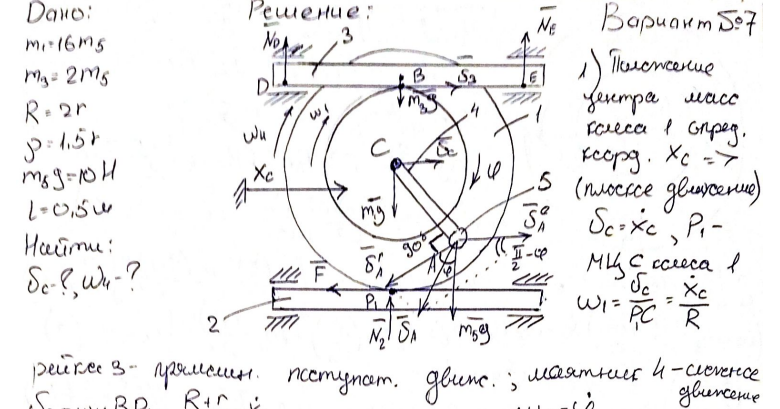 Дано:
m₁=16m₅
m₃=2m₅
R=2r
ρ=1,5r
m₅g=10H
l=0,5м
Найти:
υc-?, ω₄-?
Решение:
N̄D
3
N̄E
D
B
ῡ₃
E
m̄₃g
4
1
ω₄
ω₁
C
ῡc
Xc
φ
m̄₁g
5
ῡAᵉ
90°
ῡAʳ
A
φ
π/2-φ
F̄
P₁
2
N̄₂
ῡA
m̄₅g
Вариант №7
1) Положение
центра масс
колеса 1 опред.
коорд. Xc =>
(плоское движение)
υc=ẋc, P₁-
МЦС колеса 1
ω₁=υc/P₁C=ẋc/R
рейка 3- прямолин. поступат. движ.; маятник 4-сложное
движение
R+r